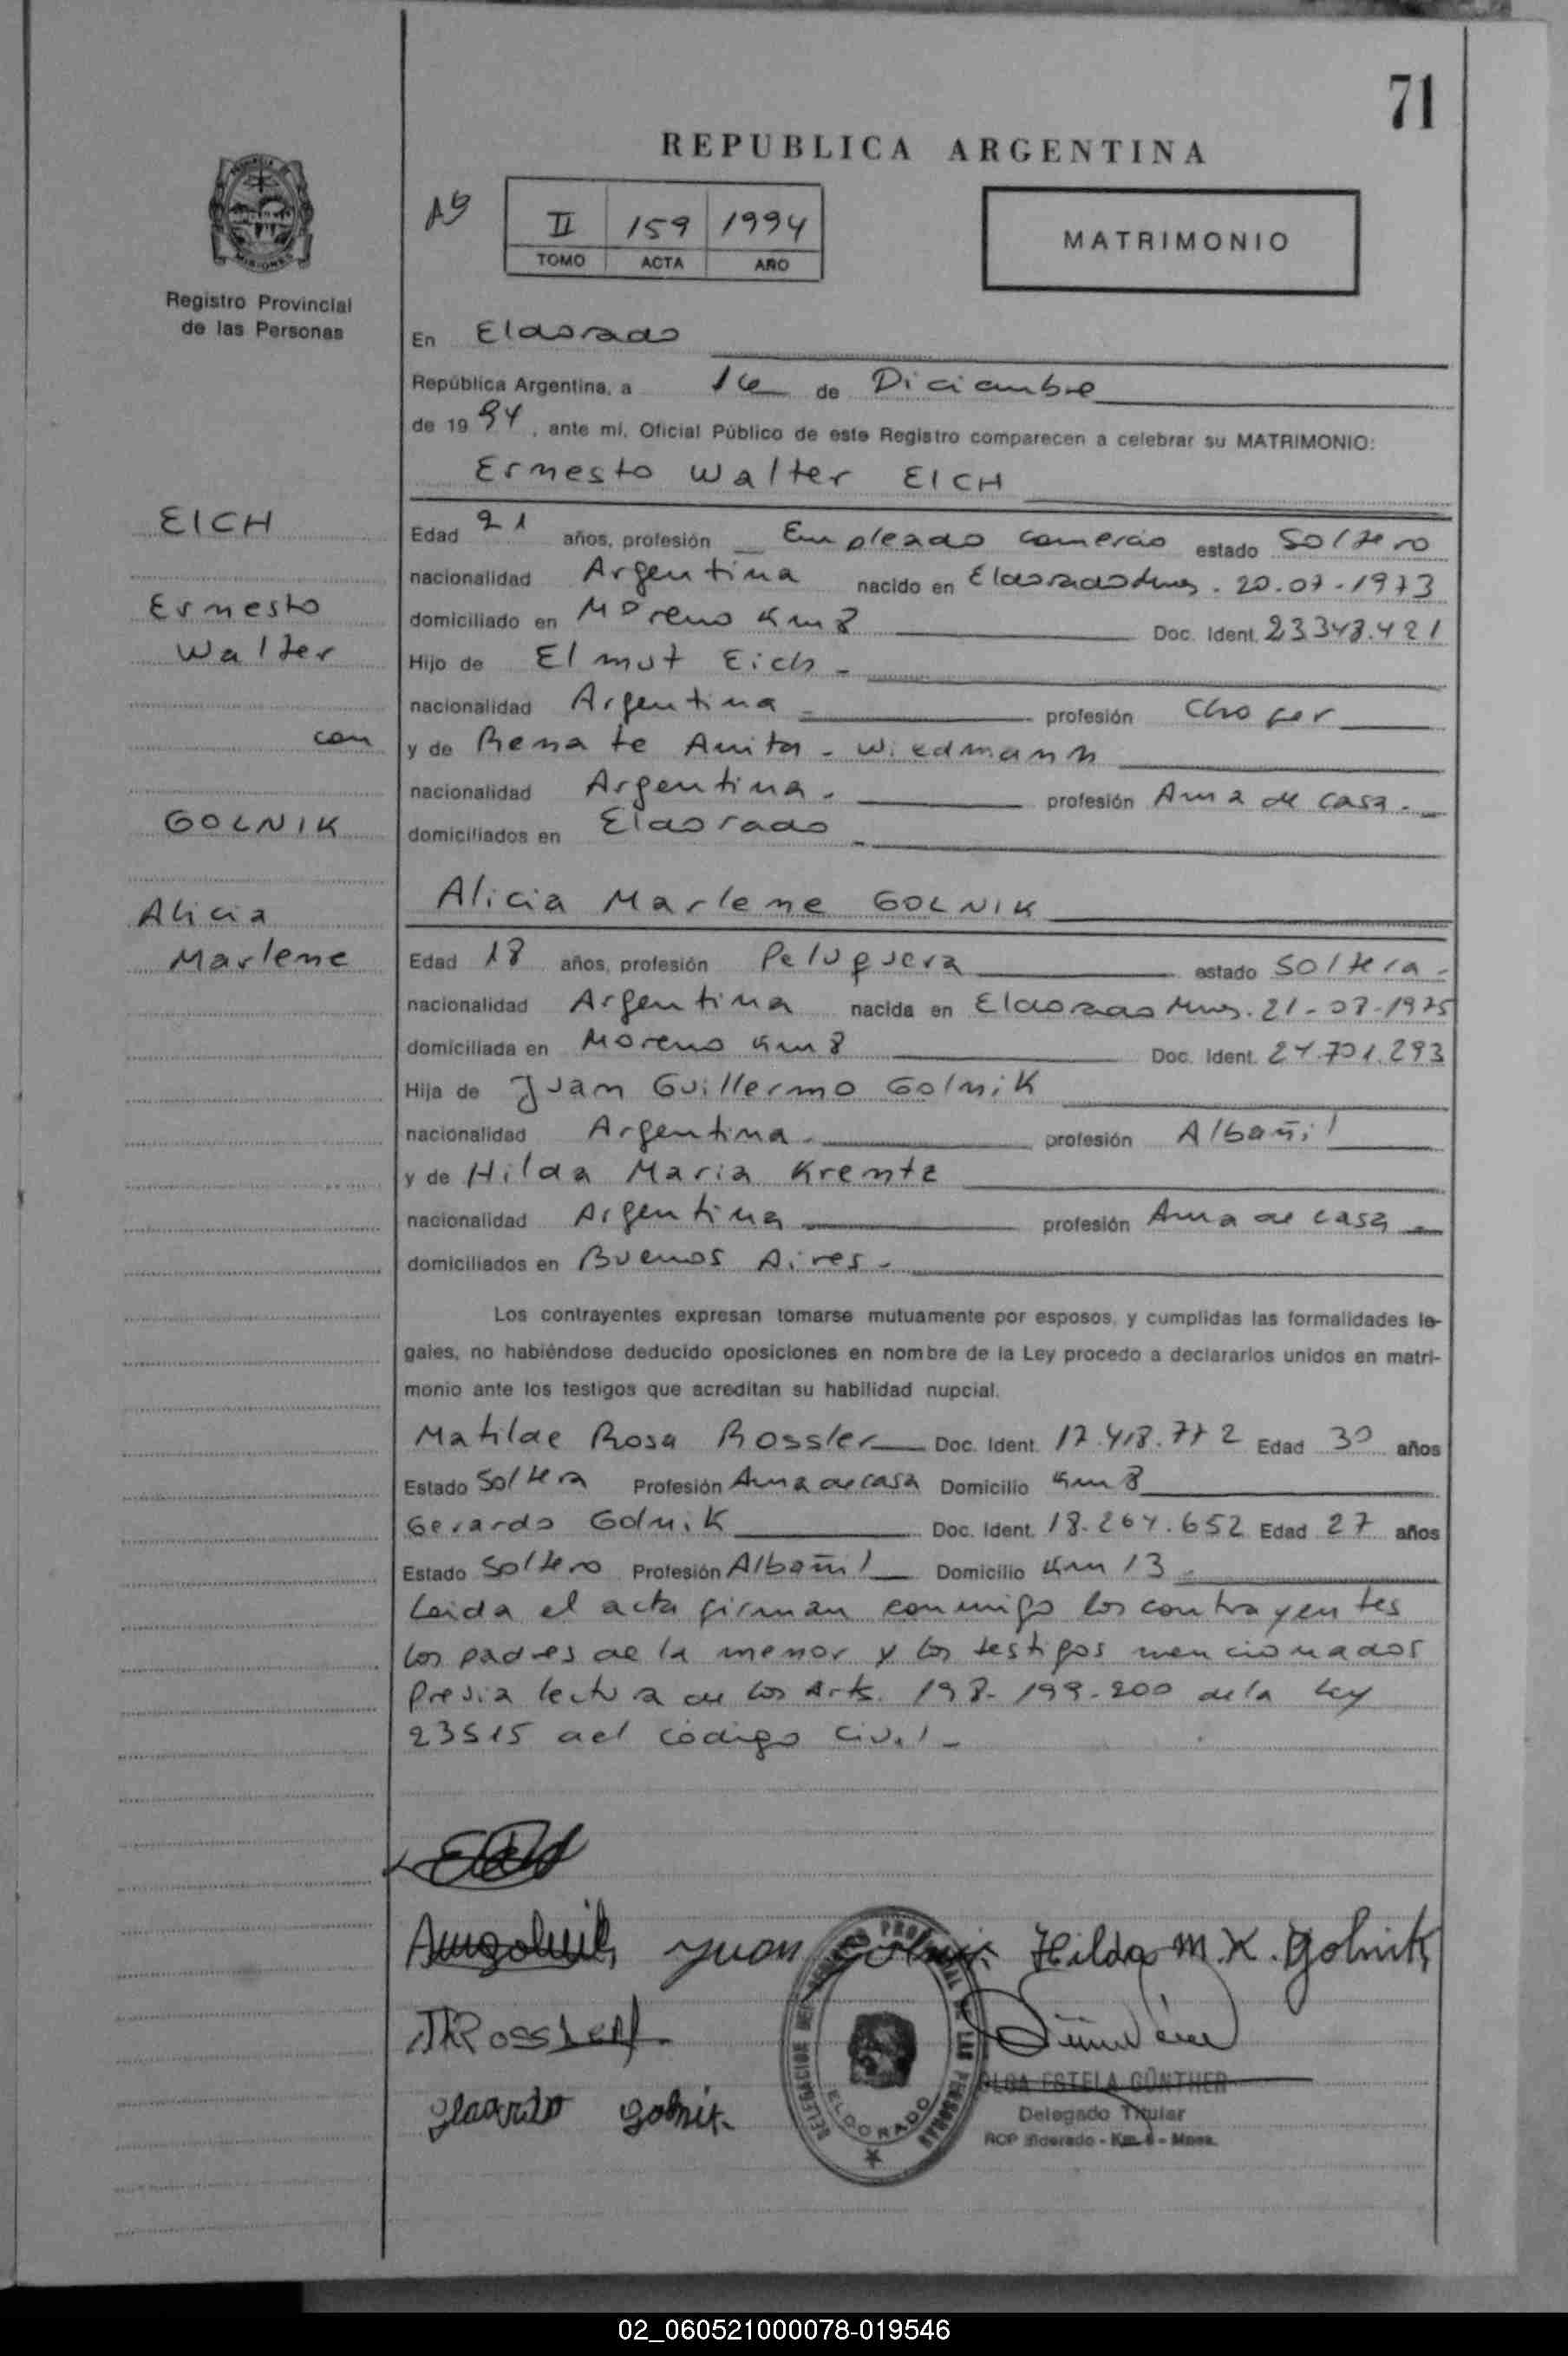 71
REPUBLICA ARGENTINA
II 159 1994
TOMO ACTA AÑO
MATRIMONIO
MISIONES
Registro Provincial
de las Personas
En Eldorado
República Argentina, a 16 de Diciembre
de 1994, ante mí, Oficial Público de este Registro comparecen a celebrar su MATRIMONIO:
Ernesto Walter EICH
EICH
Ernesto
Walter
con
GOLNIK
Alicia
Marlene
Edad 21 años, profesión Empleado comercio estado Soltero
nacionalidad Argentina nacido en Eldorado Mnes. 20.07.1973
domiciliado en Moreno Km 8 Doc. Ident. 23.348.421
Hijo de Elmut Eich -
nacionalidad Argentina - profesión Chofer
y de Renate Anita - Wiedmann
nacionalidad Argentina. profesión Ama de casa.
domiciliados en Eldorado
Alicia Marlene GOLNIK
Edad 18 años, profesión Peluquera estado Soltera -
nacionalidad Argentina nacida en Eldorado Mnes. 21-08-1975
domiciliada en Moreno Km 8 Doc. Ident. 24.701.293
Hija de Juan Guillermo Golnik
nacionalidad Argentina. profesión Albañil
y de Hilda Maria Krentz
nacionalidad Argentina profesión Ama de casa
domiciliados en Buenos Aires -
Los contrayentes expresan tomarse mutuamente por esposos, y cumplidas las formalidades le-
gales, no habiéndose deducido oposiciones en nombre de la Ley procedo a declararlos unidos en matri-
monio ante los testigos que acreditan su habilidad nupcial.
Matilde Rosa Rossler Doc. Ident. 17.418.772 Edad 30 años
Estado Soltera Profesión Ama de casa Domicilio Km 8
Gerardo Golnik Doc. Ident. 18.264.652 Edad 27 años
Estado Soltero Profesión Albañil Domicilio Km 13
Leida el acta firman conmigo los contrayentes
los padres de la menor y los testigos mencionados
Previa lectura de los Arts. 198-199-200 de la Ley
23515 del código Civil -
Juan Golnik Hilda M. K. Golnik
Rossler
Gerardo Golnik
DELEGACION DEL REGISTRO PROVINCIAL DE LAS PERSONAS
ELDORADO
OLGA ESTELA GÜNTHER
Delegado Titular
RCP Eldorado - Km. - Mnes.
02_060521000078-019546